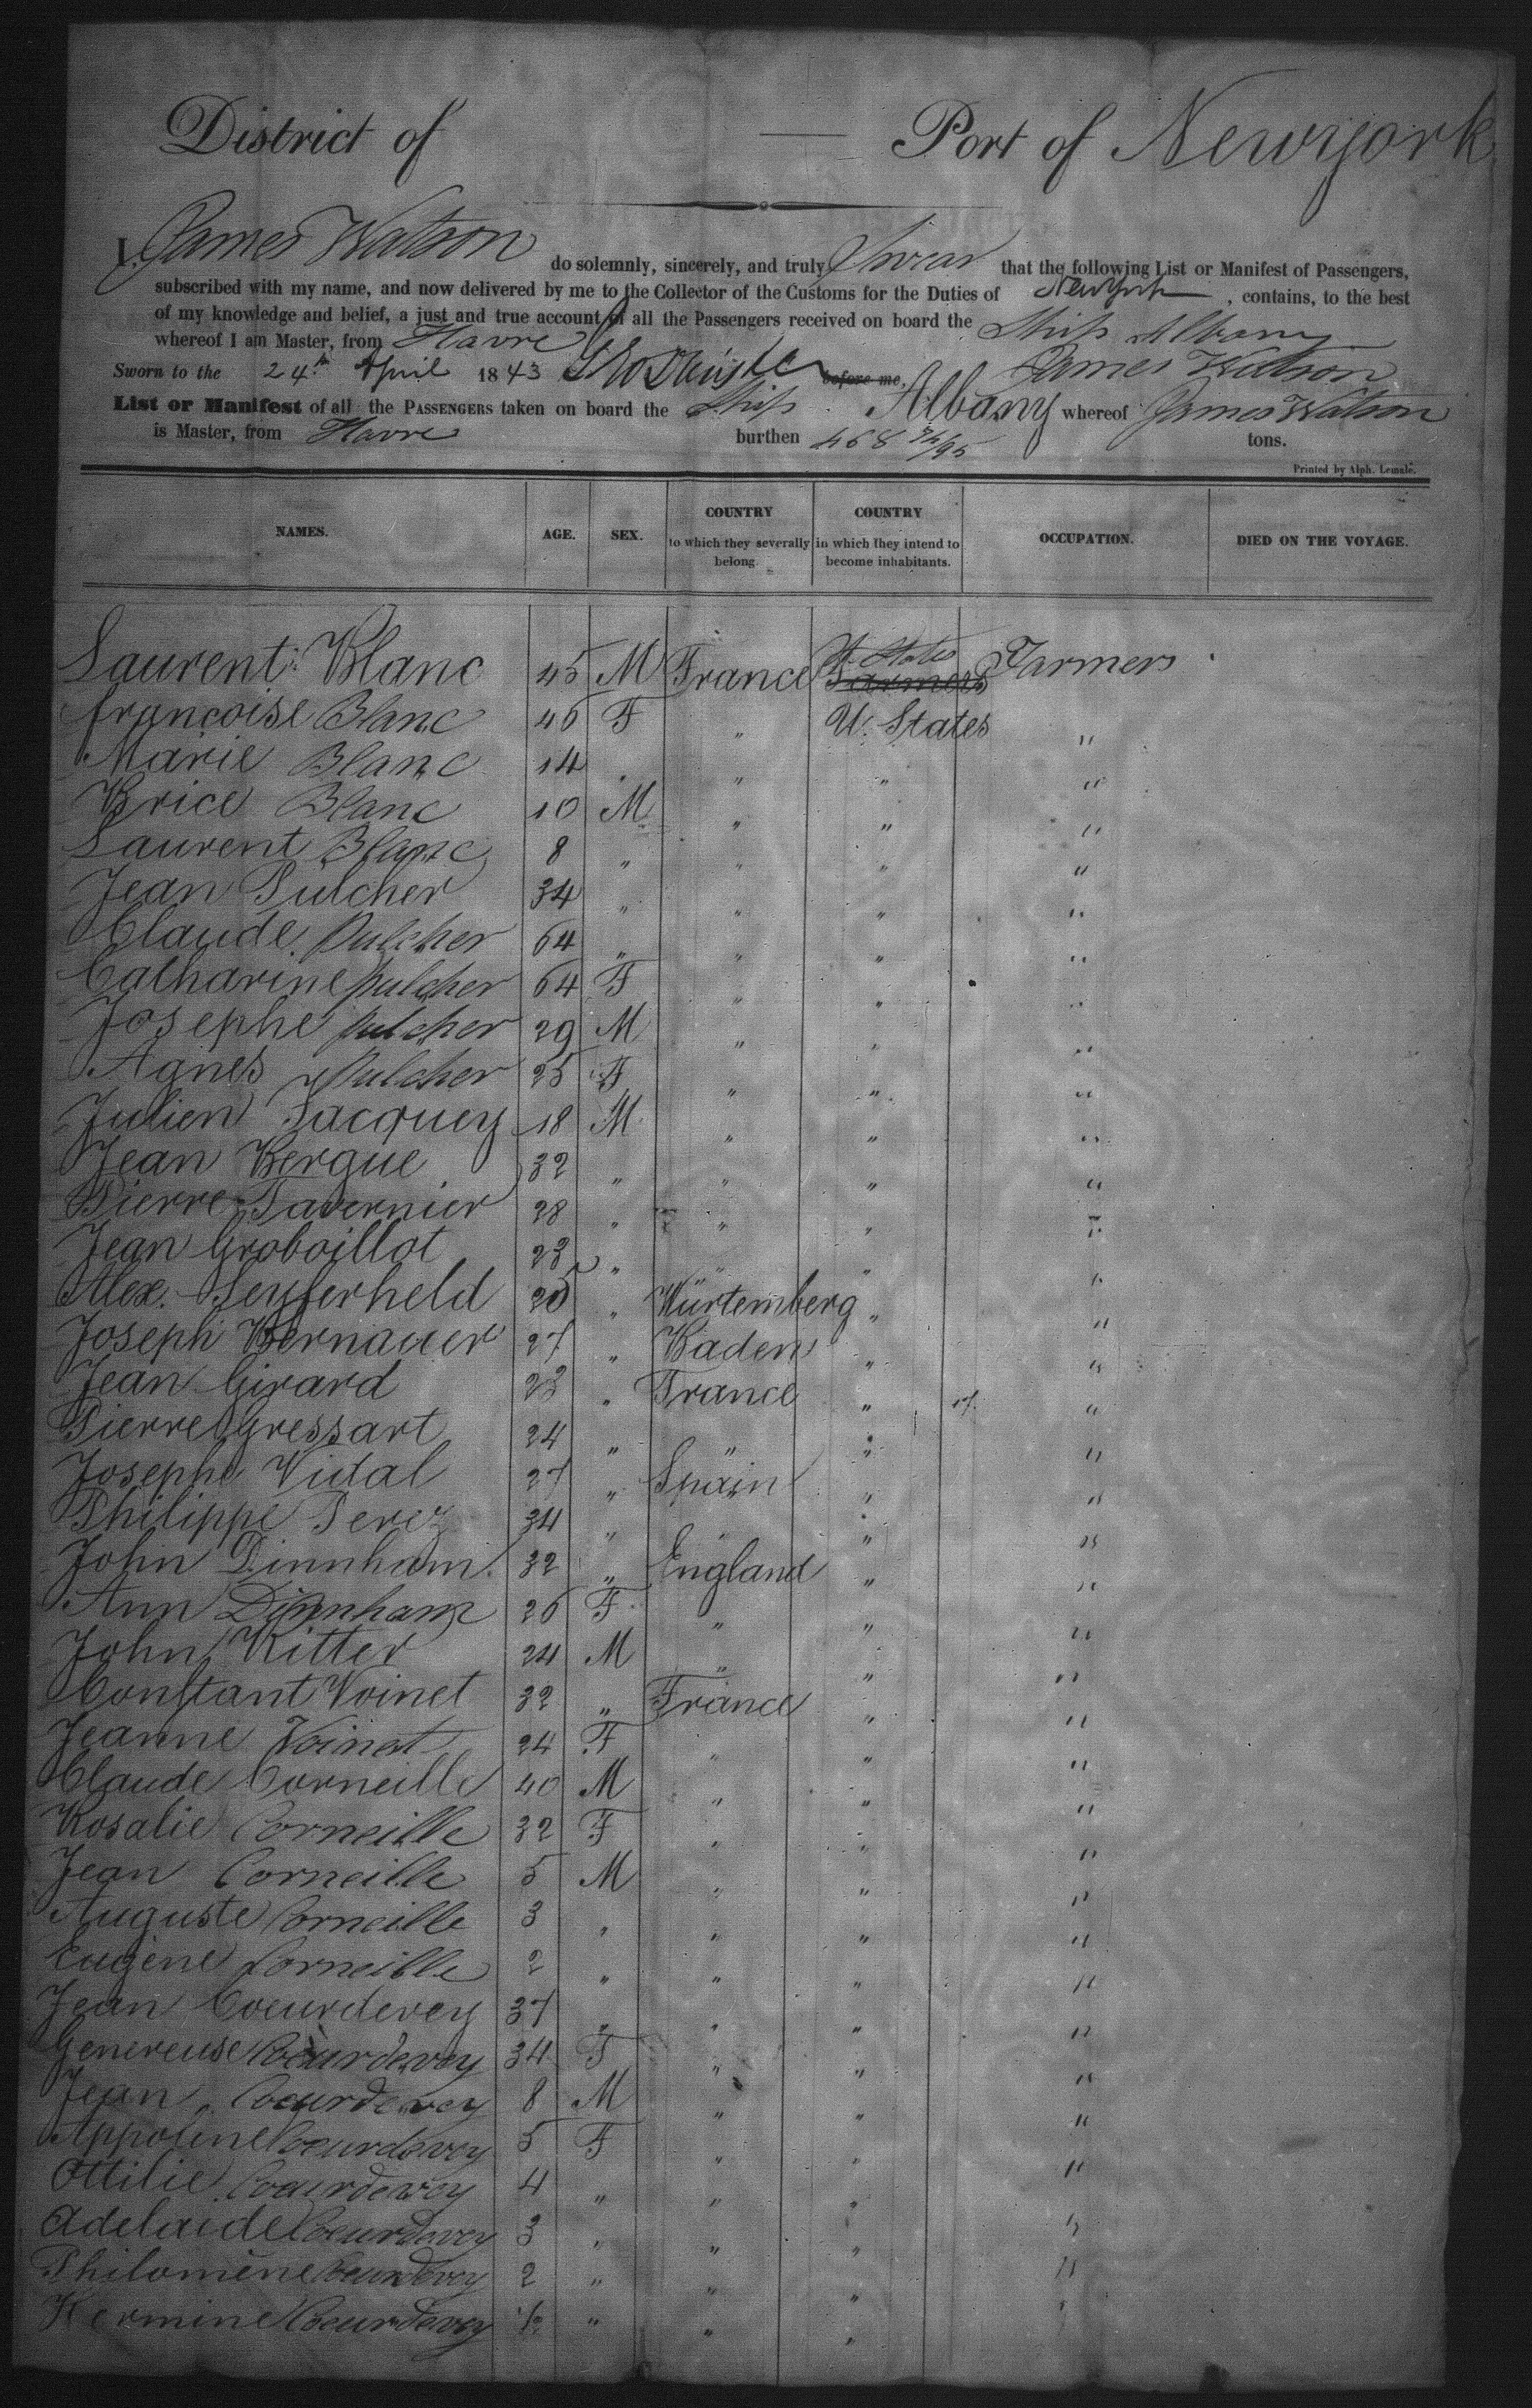 District of — Port of Newyork
I, James Watson do solemnly, sincerely, and truly Swear that the following List or Manifest of Passengers,
subscribed with my name, and now delivered by me to the Collector of the Customs for the Duties of New York, contains, to the best
of my knowledge and belief, a just and true account of all the Passengers received on board the Ship Albany
whereof I am Master, from Havre James Watson
Sworn to the 24th April 1843 before me,
List or Manifest of all the PASSENGERS taken on board the Ship Albany whereof James Watson
is Master, from Havre burthen 468 74/95 tons.
Printed by Alph. Lemale.
NAMES. AGE. SEX. COUNTRY to which they severally belong COUNTRY in which they intend to become inhabitants. OCCUPATION. DIED ON THE VOYAGE.
Laurent Blanc 45 M France U. States Farmers Farmers
françoise Blanc 46 F " U. States "
Marie Blanc 14 " " " "
Brice Blanc 10 M " " "
Laurent Blanc 8 " " " "
Jean Pulcher 34 " " " "
Claude Pulcher 64 " " " "
Catharine pulcher 64 F " " "
Josephe pulcher 29 M " " "
Agnes Pulcher 25 F " " "
Julien Jacquey 18 M " " "
Jean Bergue 32 " " " "
Pierre Tavernier 28 " " " "
Jean Groboillot 23 " " " "
Alex. Seyferheld 20 " Würtemberg " "
Joseph Bernauer 27 " Baden " "
Jean Girard 23 " France " "
Pierre Gressart 24 " " " "
Josephe Vidal 27 " Spain " "
Philippe Perez 34 " " " "
John Dinnham 32 " England " "
Ann Dinnham 26 F " " "
John Ritter 24 M " " "
Constant Voinet 32 " France " "
Jeanne Voinet 24 F " " "
Claude Corneille 40 M " " "
Rosalie Corneille 32 F " " "
Jean Corneille 5 M " " "
Auguste Corneille 3 " " " "
Eugène Corneille 2 " " " "
Jean Coeurdevey 37 " " " "
Genereuse Coeurdevey 34 F " " "
Jean Coeurdevey 8 M " " "
Appoline Coeurdevey 5 F " " "
Ottilie Coeurdevey 4 " " " "
Adelaide Coeurdevey 3 " " " "
Philomène Coeurdevey 2 " " " "
Hermine Coeurdevey 1/2 " " " "